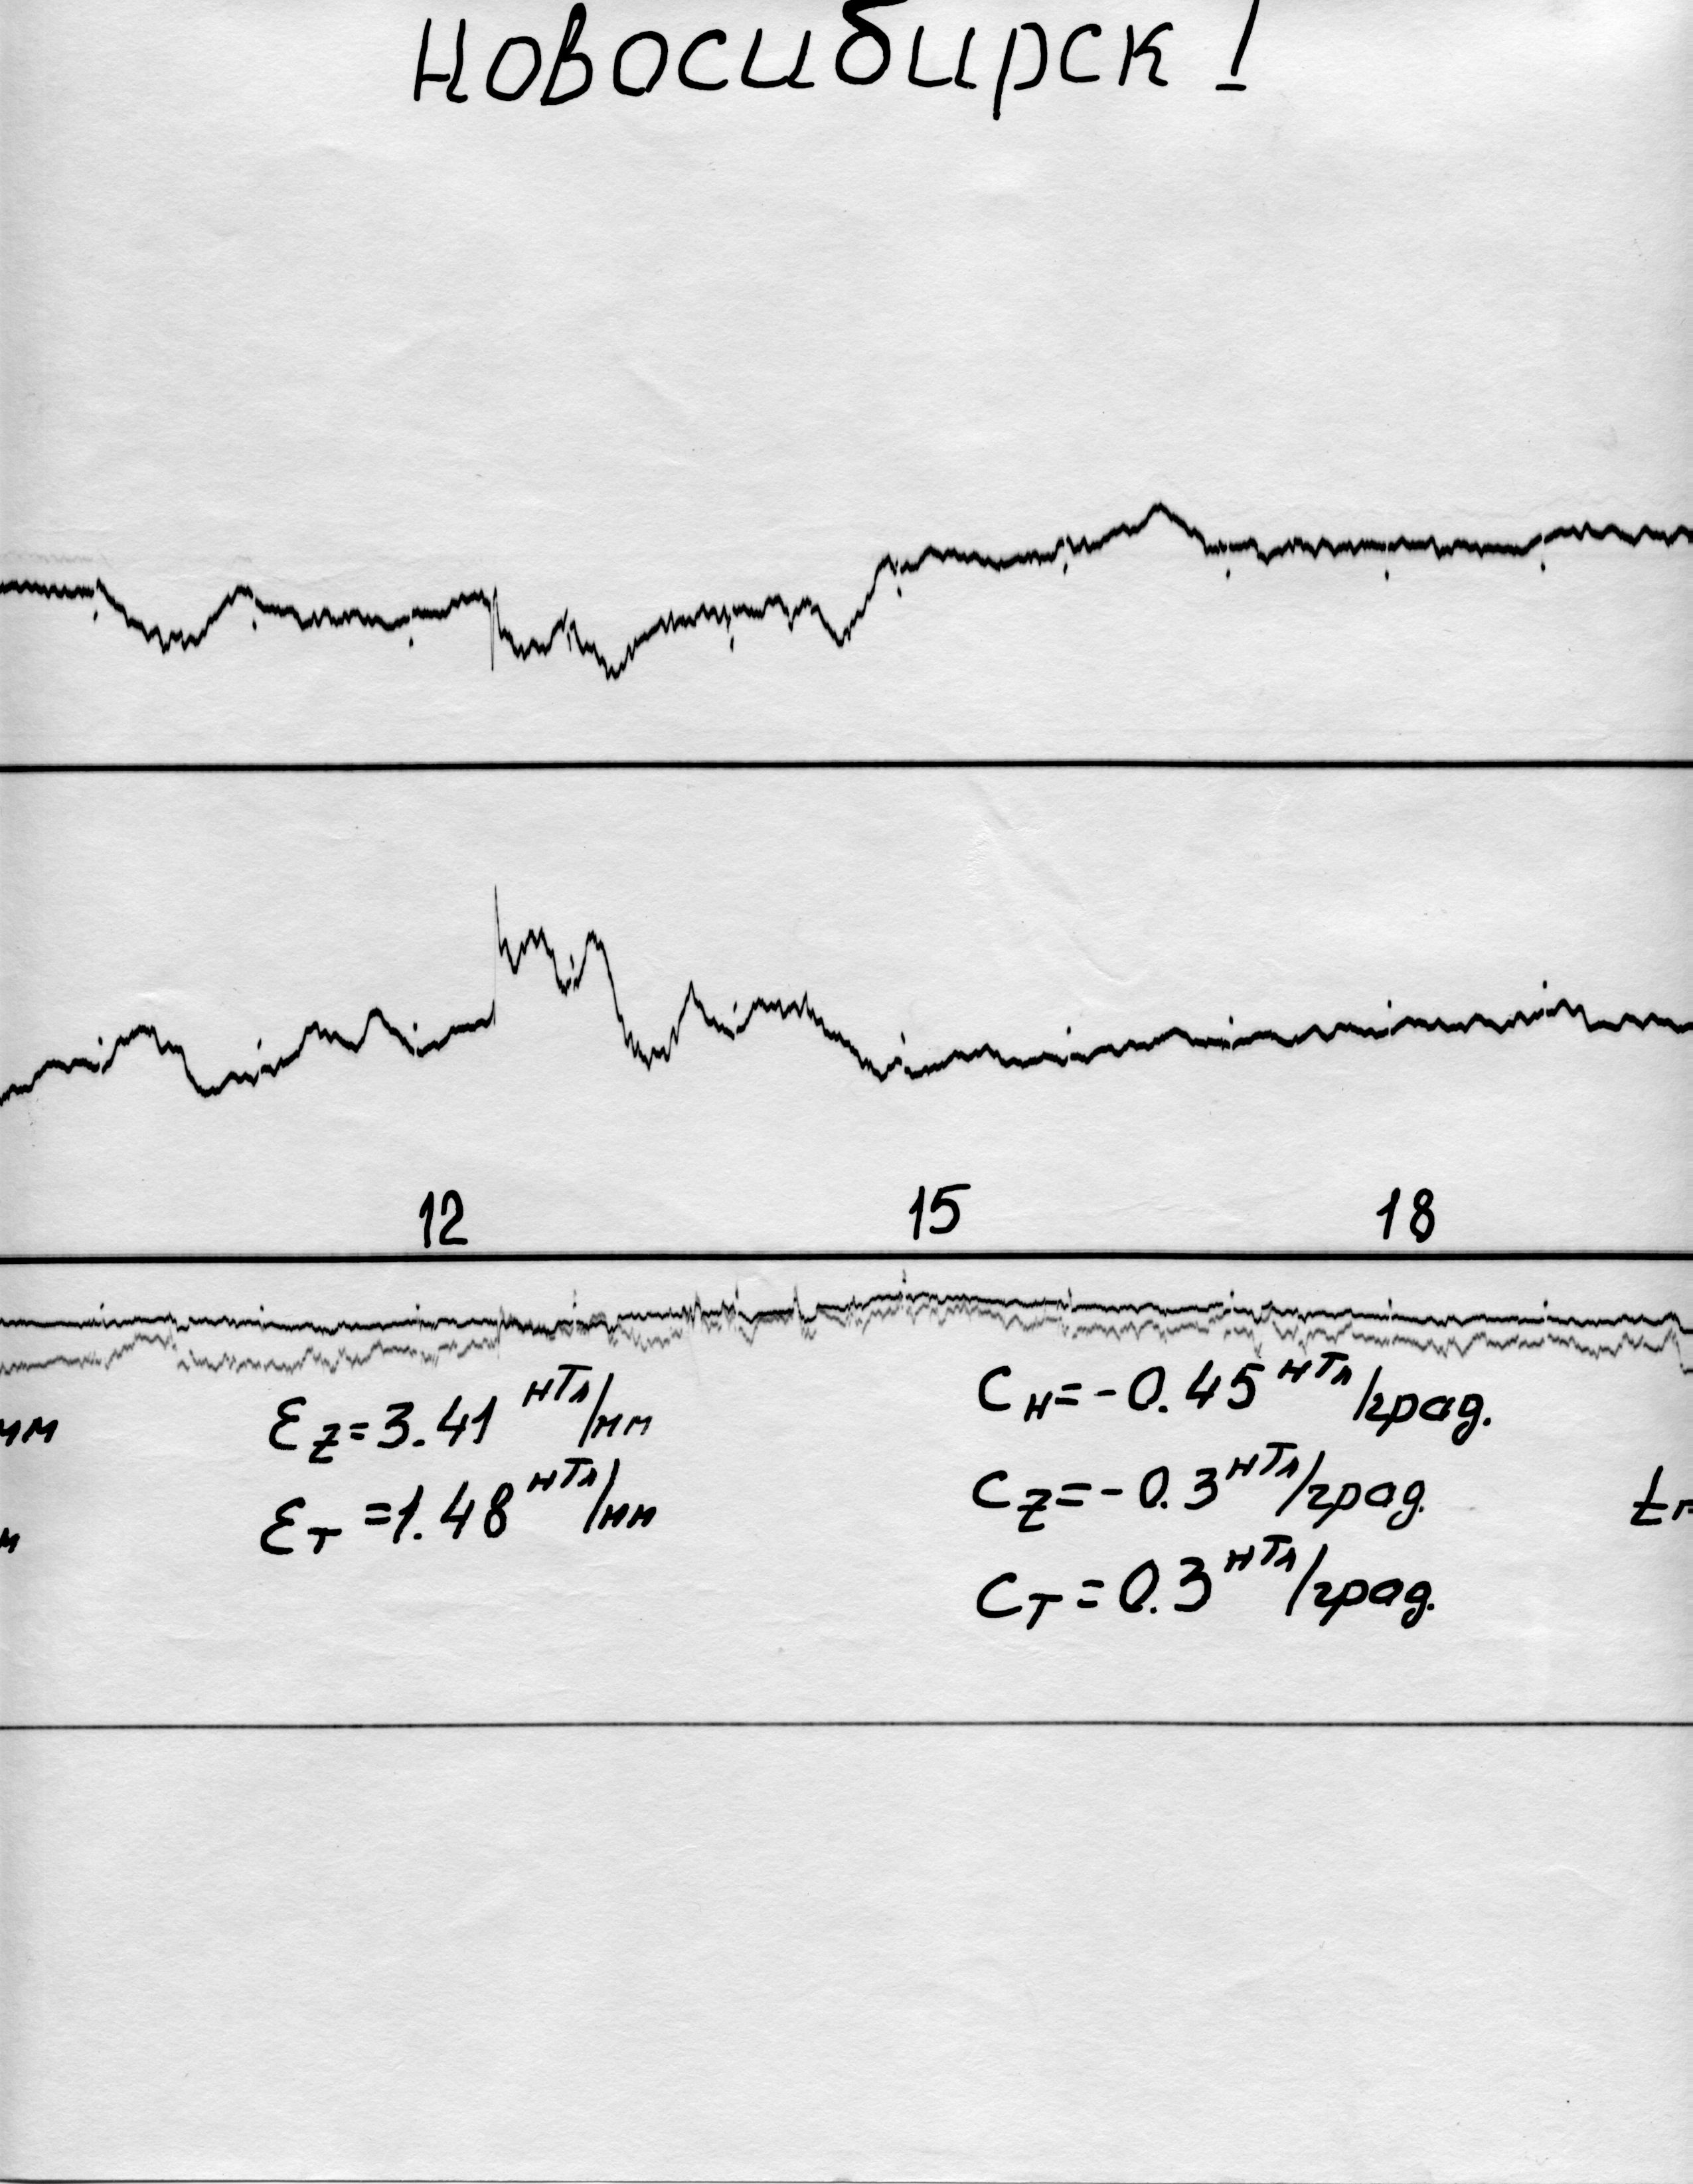 Новосибирск!
12 15 18
мм εz=3.41 нТл/мм Cн=-0.45 нТл/град.
εт=1.48 нТл/мм Cz=-0.3 нТл/град.
Cт=0.3 нТл/град.